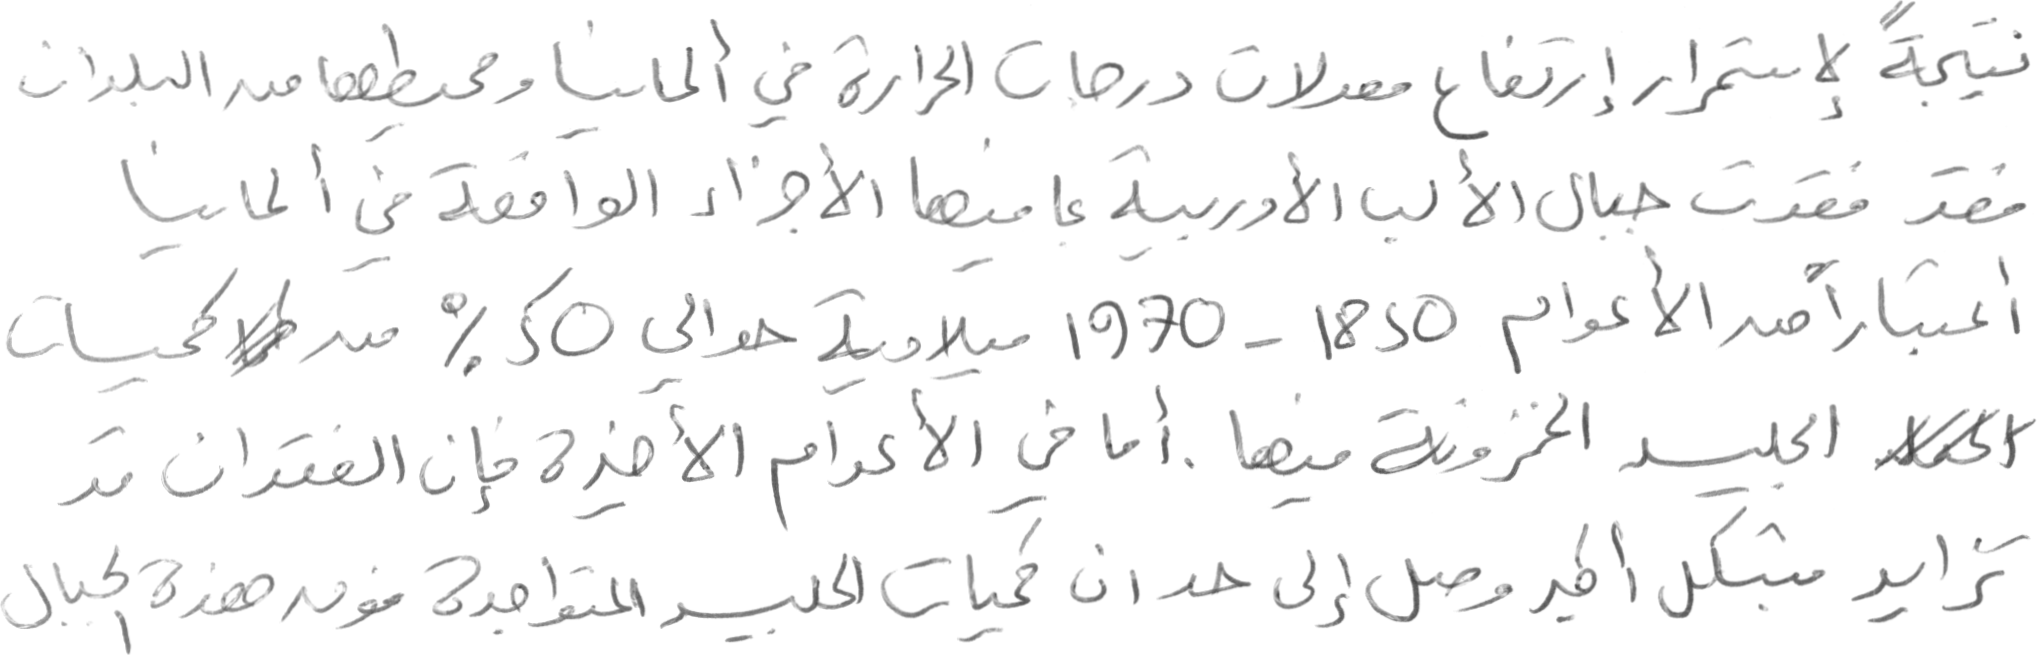 نتيجةً لإستمرار إرتفاع معدلات درجات الحرارة في ألمانيا ومحيطها من البلدان
فقد فقدت جبال الألب الأوربية بما فيها الأجزاء الواقعة في ألمانيا
أعتباراً من الأعوام 1850 - 1970 ميلادية حوالي 50% من كميات
الجليد المخزونة فيها. أما في الأعوام الأخيرة فإن الفقدان قد
تزايد بشكل أكبر وصل إلى حد ان كميات الجليد المتواجدة فوق هذة الجبال